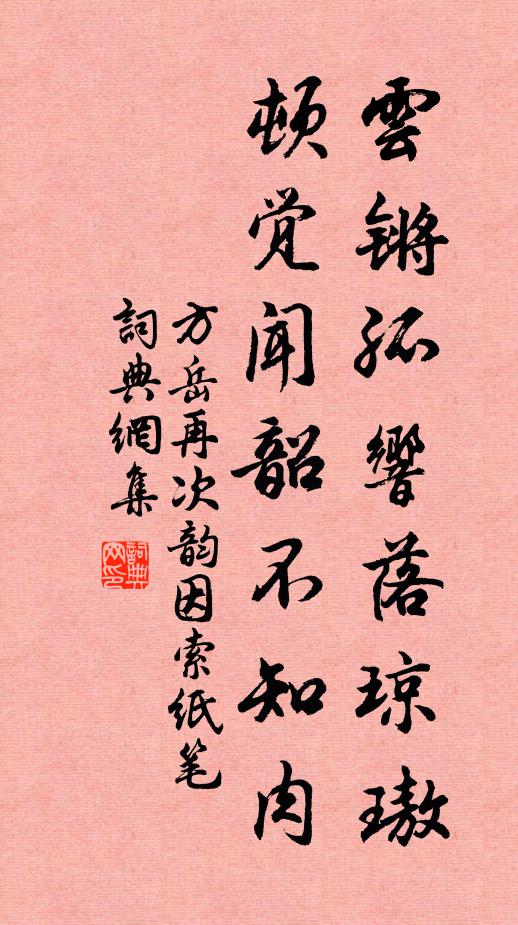 雲锵孤響落琼璈
顿觉闻韶不知肉
方岳再次韵因索纸笔
詞典網集
詞典网印